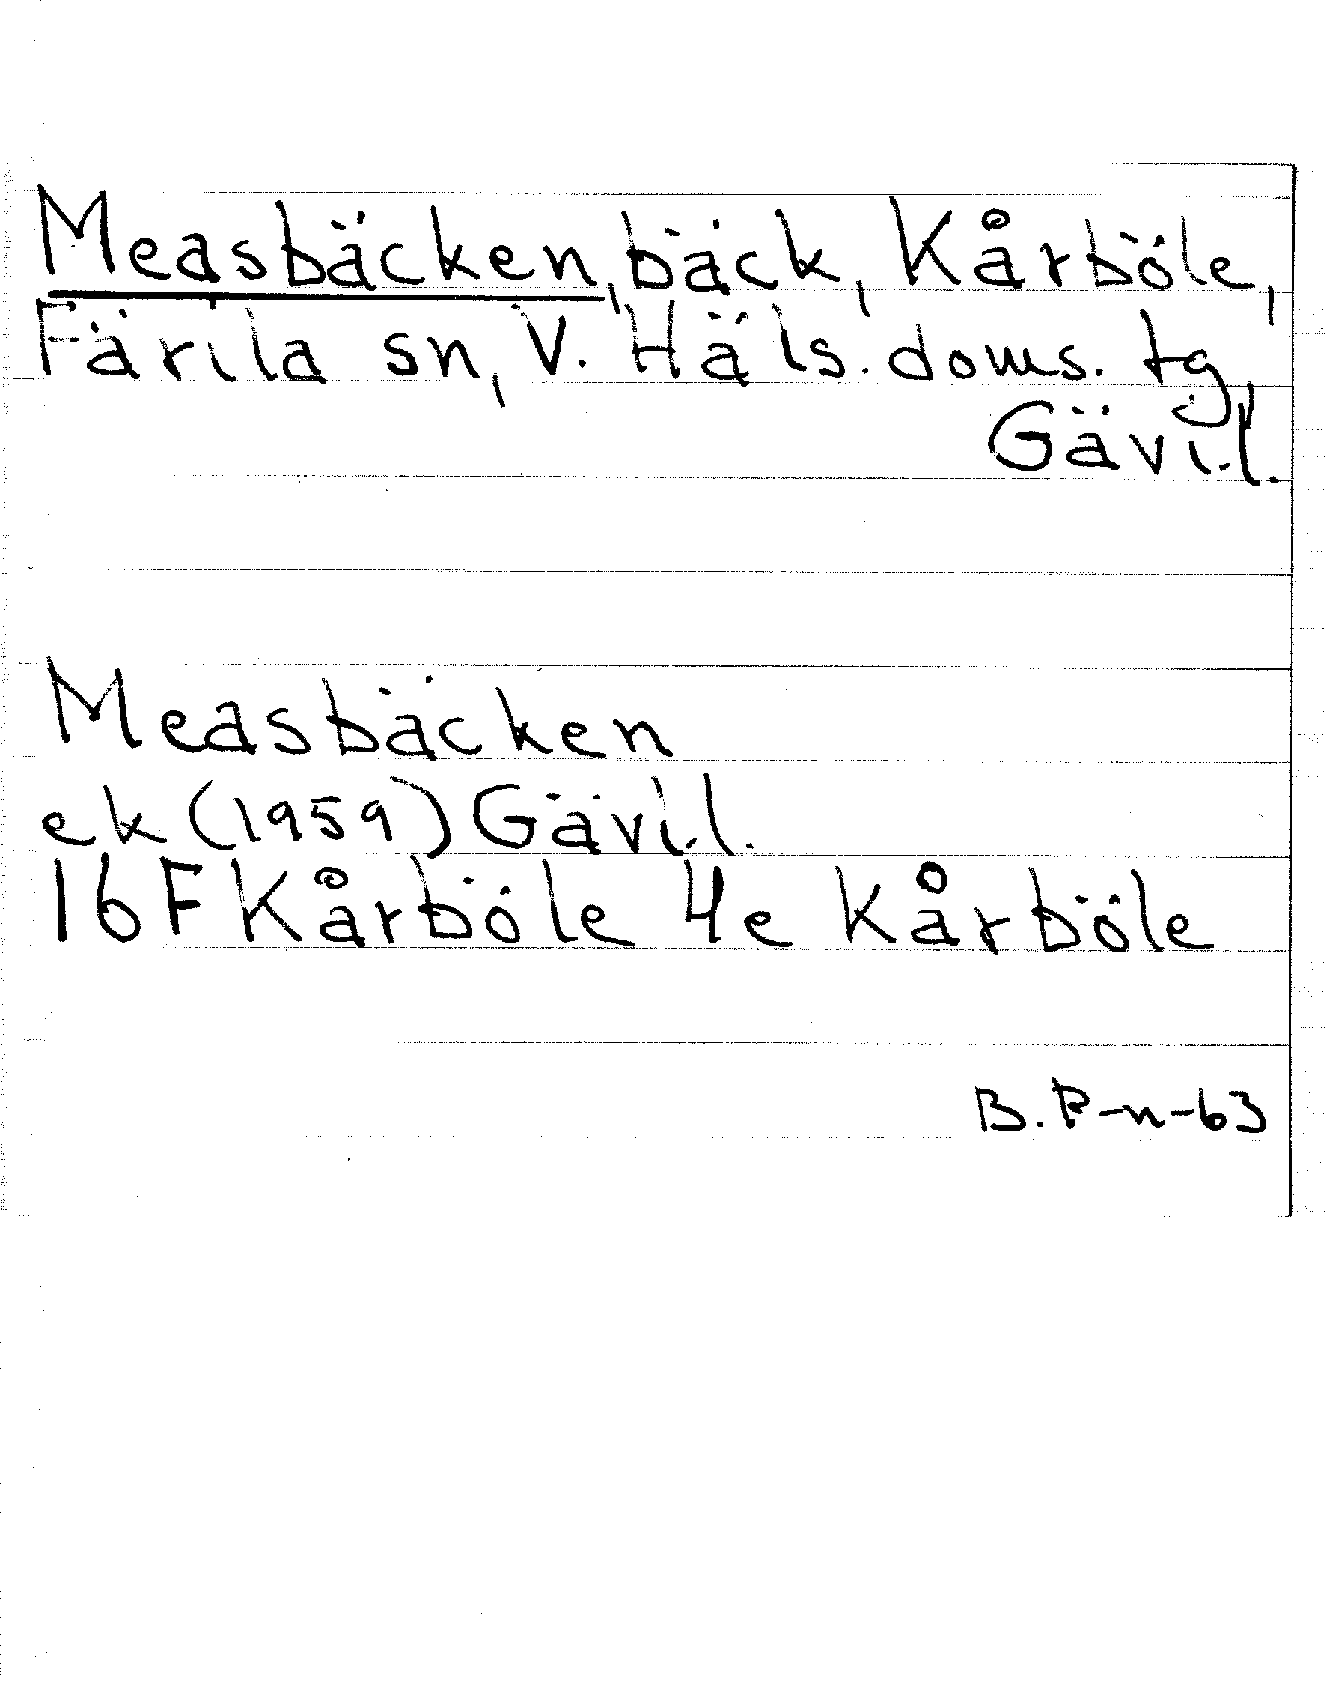 Measbäcken, bäck, Kårböle,
Färila sn, V. Häls. doms. tg,
Gävl.
Measbäcken
ek (1959) Gävl.
16F Kårböle 4e Kårböle
B. P-n-63